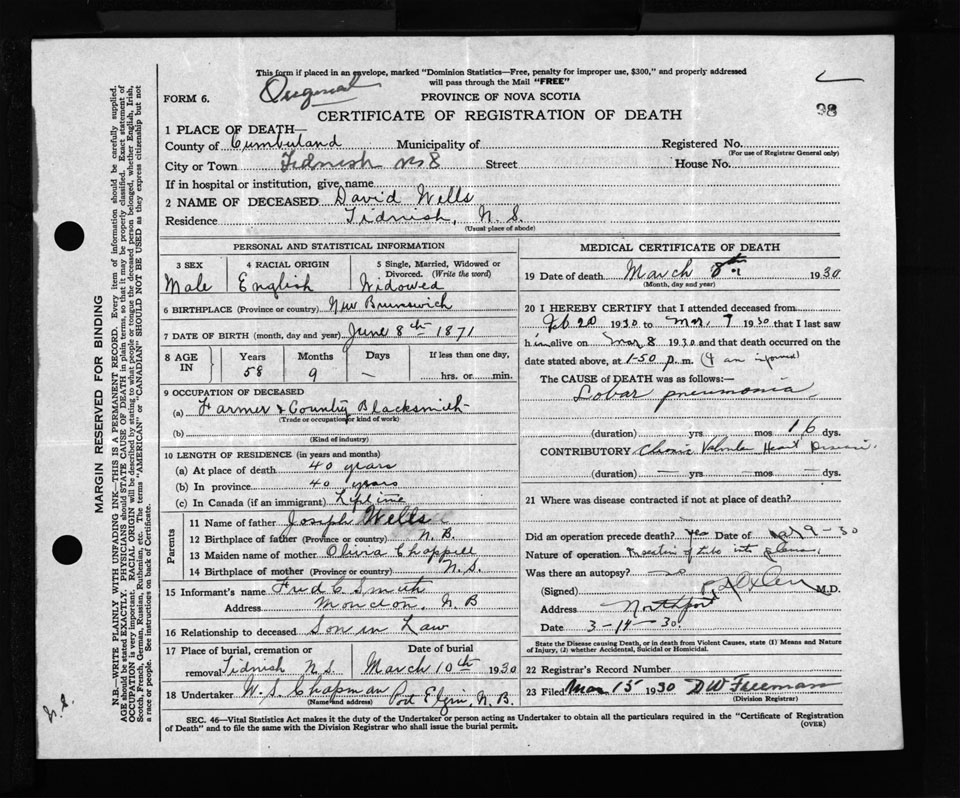 This form if placed in an envelope, marked "Dominion Statistics—Free, penalty for improper use, $300," and properly addressed
will pass through the Mail "FREE"
FORM 6.
Original
PROVINCE OF NOVA SCOTIA
98
CERTIFICATE OF REGISTRATION OF DEATH
1 PLACE OF DEATH—
County of Cumberland Municipality of Registered No.
(For use of Registrar General only)
City or Town Tidnish No 8 Street House No.
If in hospital or institution, give name
2 NAME OF DECEASED David Wells
Residence Tidnish, N. S.
(Usual place of abode)
PERSONAL AND STATISTICAL INFORMATION
3 SEX 4 RACIAL ORIGIN 5 Single, Married, Widowed or
Divorced. (Write the word)
Male English Widowed
6 BIRTHPLACE (Province or country) New Brunswick
7 DATE OF BIRTH (month, day and year) June 8th 1871
8 AGE IN Years Months Days If less than one day,
58 9 — hrs. or min.
9 OCCUPATION OF DECEASED
(a) Farmer & Country Blacksmith
(Trade or occupation or kind of work)
(b)
(Kind of industry)
10 LENGTH OF RESIDENCE (in years and months)
(a) At place of death 40 years
(b) In province 40 years
(c) In Canada (if an immigrant) Lifetime
Parents
11 Name of father Joseph Wells
12 Birthplace of father (Province or country) N. B.
13 Maiden name of mother Olivia Chappell
14 Birthplace of mother (Province or country) N. S.
15 Informant's name Fred C Smith
Address Moncton, N. B
16 Relationship to deceased Son in Law
17 Place of burial, cremation or Date of burial
removal Tidnish N. S. March 10th 1930
18 Undertaker W. S. Chapman Port Elgin, N. B.
(Name and address)
MEDICAL CERTIFICATE OF DEATH
19 Date of death March 8th 1930
(Month, day and year)
20 I HEREBY CERTIFY that I attended deceased from
Feb 20 1930 to Mar, 7 1930 that I last saw
him alive on Mar 8 1930 and that death occurred on the
date stated above, at 1-50 p. m. (I am informed)
The CAUSE of DEATH was as follows:—
Lobar pneumonia
(duration) yrs mos 16 dys.
CONTRIBUTORY Chronic Valvular Heart Disease.
(duration) — yrs — mos — dys.
21 Where was disease contracted if not at place of death?
Did an operation precede death? Yes Date of 9-30
Nature of operation of tube into
Was there an autopsy? no
(Signed) M.D.
Address Northport
Date 3-14-30
State the Disease causing Death, or in death from Violent Causes, state (1) Means and Nature
of Injury, (2) whether Accidental, Suicidal or Homicidal.
22 Registrar's Record Number
23 Filed Mar 15 1930 D W Freeman
(Division Registrar)
SEC. 46—Vital Statistics Act makes it the duty of the Undertaker or person acting as Undertaker to obtain all the particulars required in the "Certificate of Registration
of Death" and to file the same with the Division Registrar who shall issue the burial permit.
(OVER)
MARGIN RESERVED FOR BINDING
N.B.—WRITE PLAINLY WITH UNFADING INK—THIS IS A PERMANENT RECORD. Every item of information should be carefully supplied.
AGE should be stated EXACTLY. PHYSICIANS should STATE CAUSE OF DEATH in plain terms, so that it may be properly classified. Exact statement of
OCCUPATION is very important. RACIAL ORIGIN will be described by stating to what people or tongue the deceased person belonged, whether English, Irish,
Scotch, French, German, Russian, Ruthenian, etc. The terms "AMERICAN" or "CANADIAN" SHOULD NOT BE USED as they express citizenship but not
a race or people. See instructions on back of Certificate.
N. S.